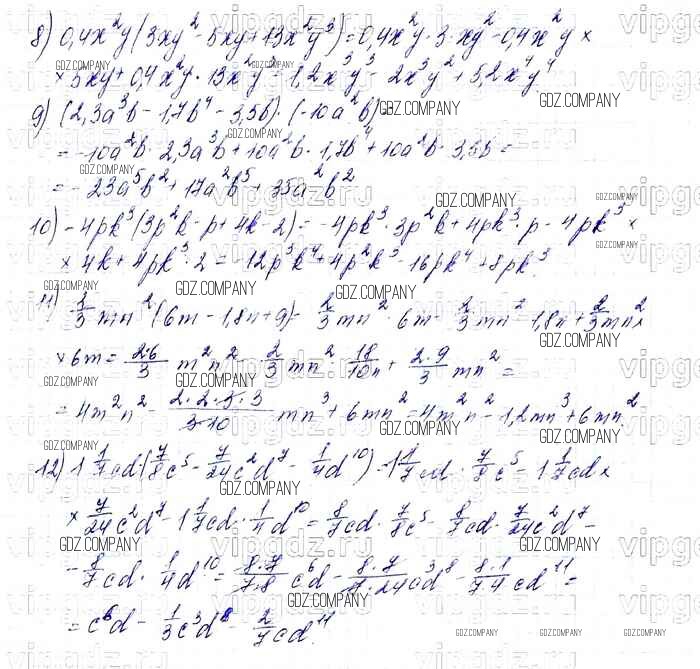 8) 0,4x²y(3xy² - 5xy + 13x²y³) = 0,4x²y · 3xy² - 0,4x²y ×
× 5xy + 0,4x²y · 13x²y³ = 1,2x³y³ - 2x³y² + 5,2x⁴y⁴
9) (2,3a³b - 1,7b⁴ - 3,5b) · (-10a²b) =
= -10a²b · 2,3a³b + 10a²b · 1,7b⁴ + 10a²b · 3,5b =
= -23a⁵b² + 17a²b⁵ + 35a²b²
10) -4pk³(3p²k - p + 4k - 2) = -4pk³ · 3p²k + 4pk³ · p - 4pk³ ×
× 4k + 4pk³ · 2 = -12p³k⁴ + 4p²k³ - 16pk⁴ + 8pk³.
11) 2/3 mn²(6m - 1,8n + 9) = 2/3 mn² · 6m - 2/3 mn² · 1,8n + 2/3 mn² ×
× 6m = 2·6/3 m²n² - 2/3 mn² · 18/10 n + 2·9/3 mn² =
= 4m²n² - 2·2·3·3/3·10 mn³ + 6mn² = 4m²n² - 1,2mn³ + 6mn².
12) 1 1/7 cd · (7/8 c⁵ - 7/24 c²d⁷ - 1/4 d¹⁰) = 1 1/7 cd · 7/8 c⁵ - 1 1/7 cd ×
× 7/24 c²d⁷ - 1 1/7 cd · 1/4 d¹⁰ = 8/7 cd · 7/8 c⁵ - 8/7 cd · 7/24 c²d⁷ -
- 8/7 cd · 1/4 d¹⁰ = 8·7/7·8 c⁶d - 8·7/7·24 c³d⁸ - 8·1/7·4 cd¹¹ =
= c⁶d - 1/3 c³d⁸ - 2/7 cd¹¹.
GDZ.COMPANY
vipgdz.ru